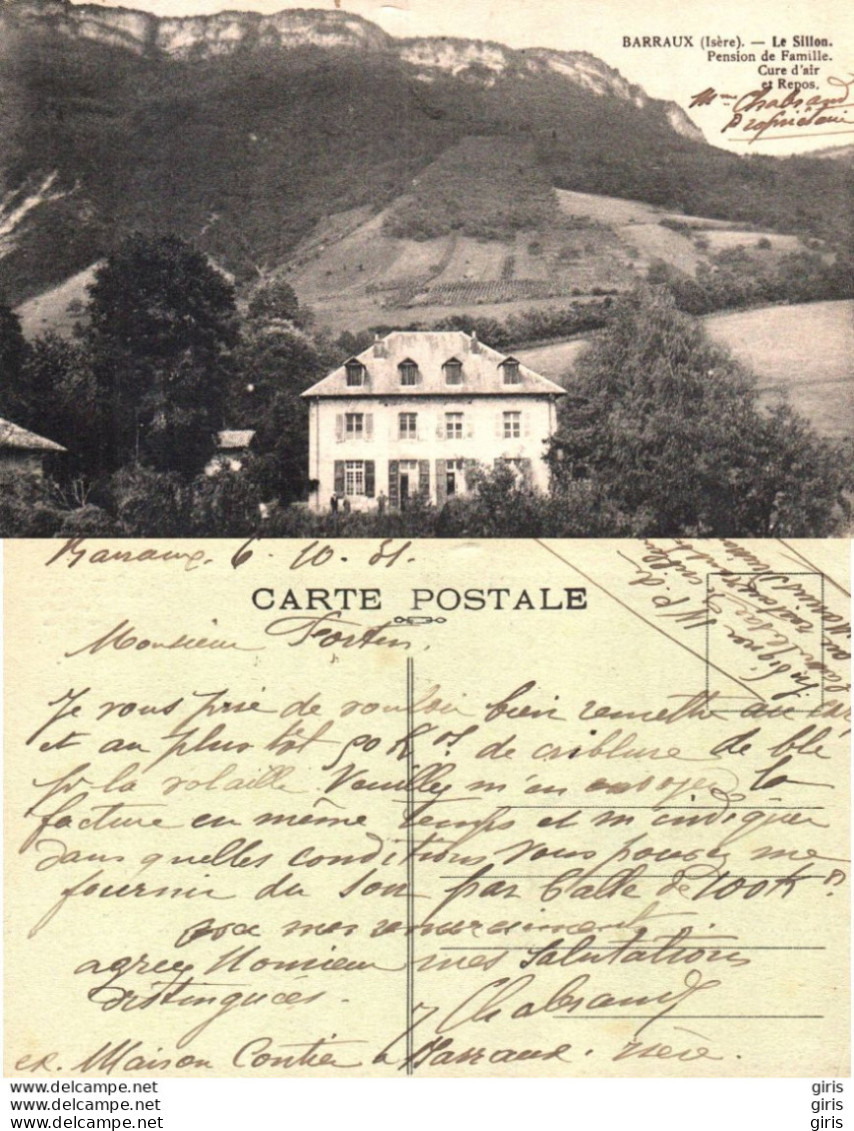 BARRAUX (Isère). — Le Sillon.
Pension de Famille.
Cure d'air
et Repos.
Mme Chabrand
Propriétaire
Barraux. 6. 10. 31.
CARTE POSTALE
Monsieur Fortin
Je vous prie de vouloir bien remettre au
et au plus tôt 50 Kos de criblure de blé
pr la volaille. Veuillez m'en envoyer la
facture en même temps et m'indiquer
dans quelles conditions vous pouvez me
fournir du son par balle de 100 Ks
mes remerciements
agréez Monsieur mes salutations
distinguées.
J Chabrand
ex. Maison Contier à Barraux. Isère.
giris
giris
giris
www.delcampe.net
giris
giris
giris